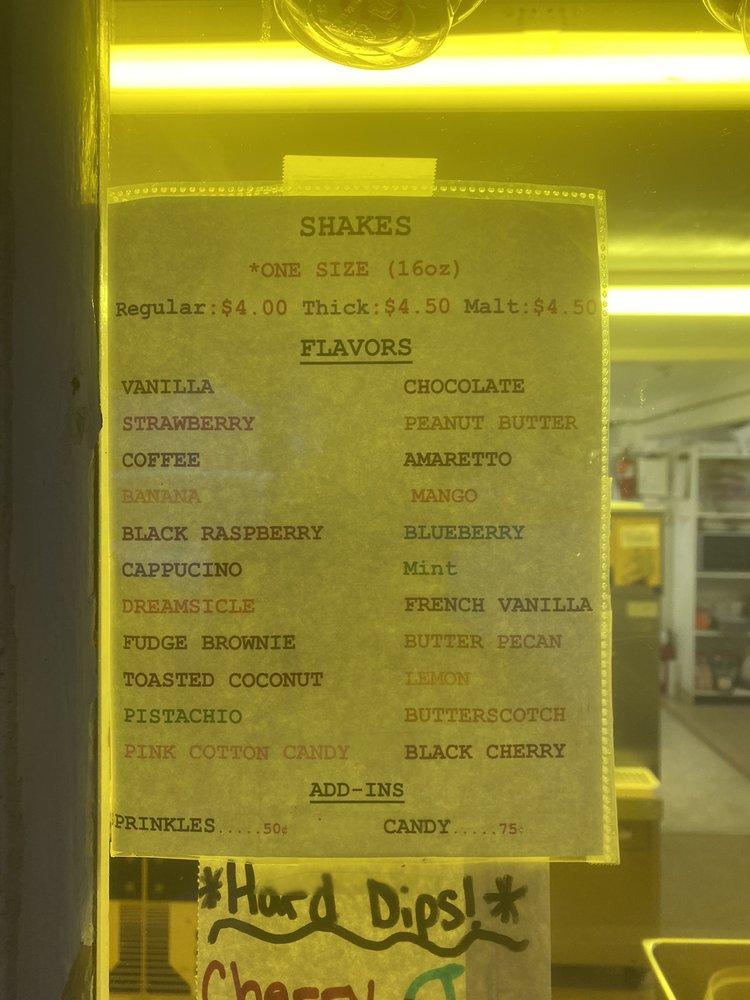 SHAKES
*ONE SIZE (16oz)
Regular:$4.00 Thick:$4.50 Malt:$4.50
FLAVORS
VANILLA CHOCOLATE
STRAWBERRY PEANUT BUTTER
COFFEE AMARETTO
BANANA MANGO
BLACK RASPBERRY BLUEBERRY
CAPPUCINO Mint
DREAMSICLE FRENCH VANILLA
FUDGE BROWNIE BUTTER PECAN
TOASTED COCONUT LEMON
PISTACHIO BUTTERSCOTCH
PINK COTTON CANDY BLACK CHERRY
ADD-INS
SPRINKLES.....50¢ CANDY.....75¢
*Hard Dips!*
Cherry